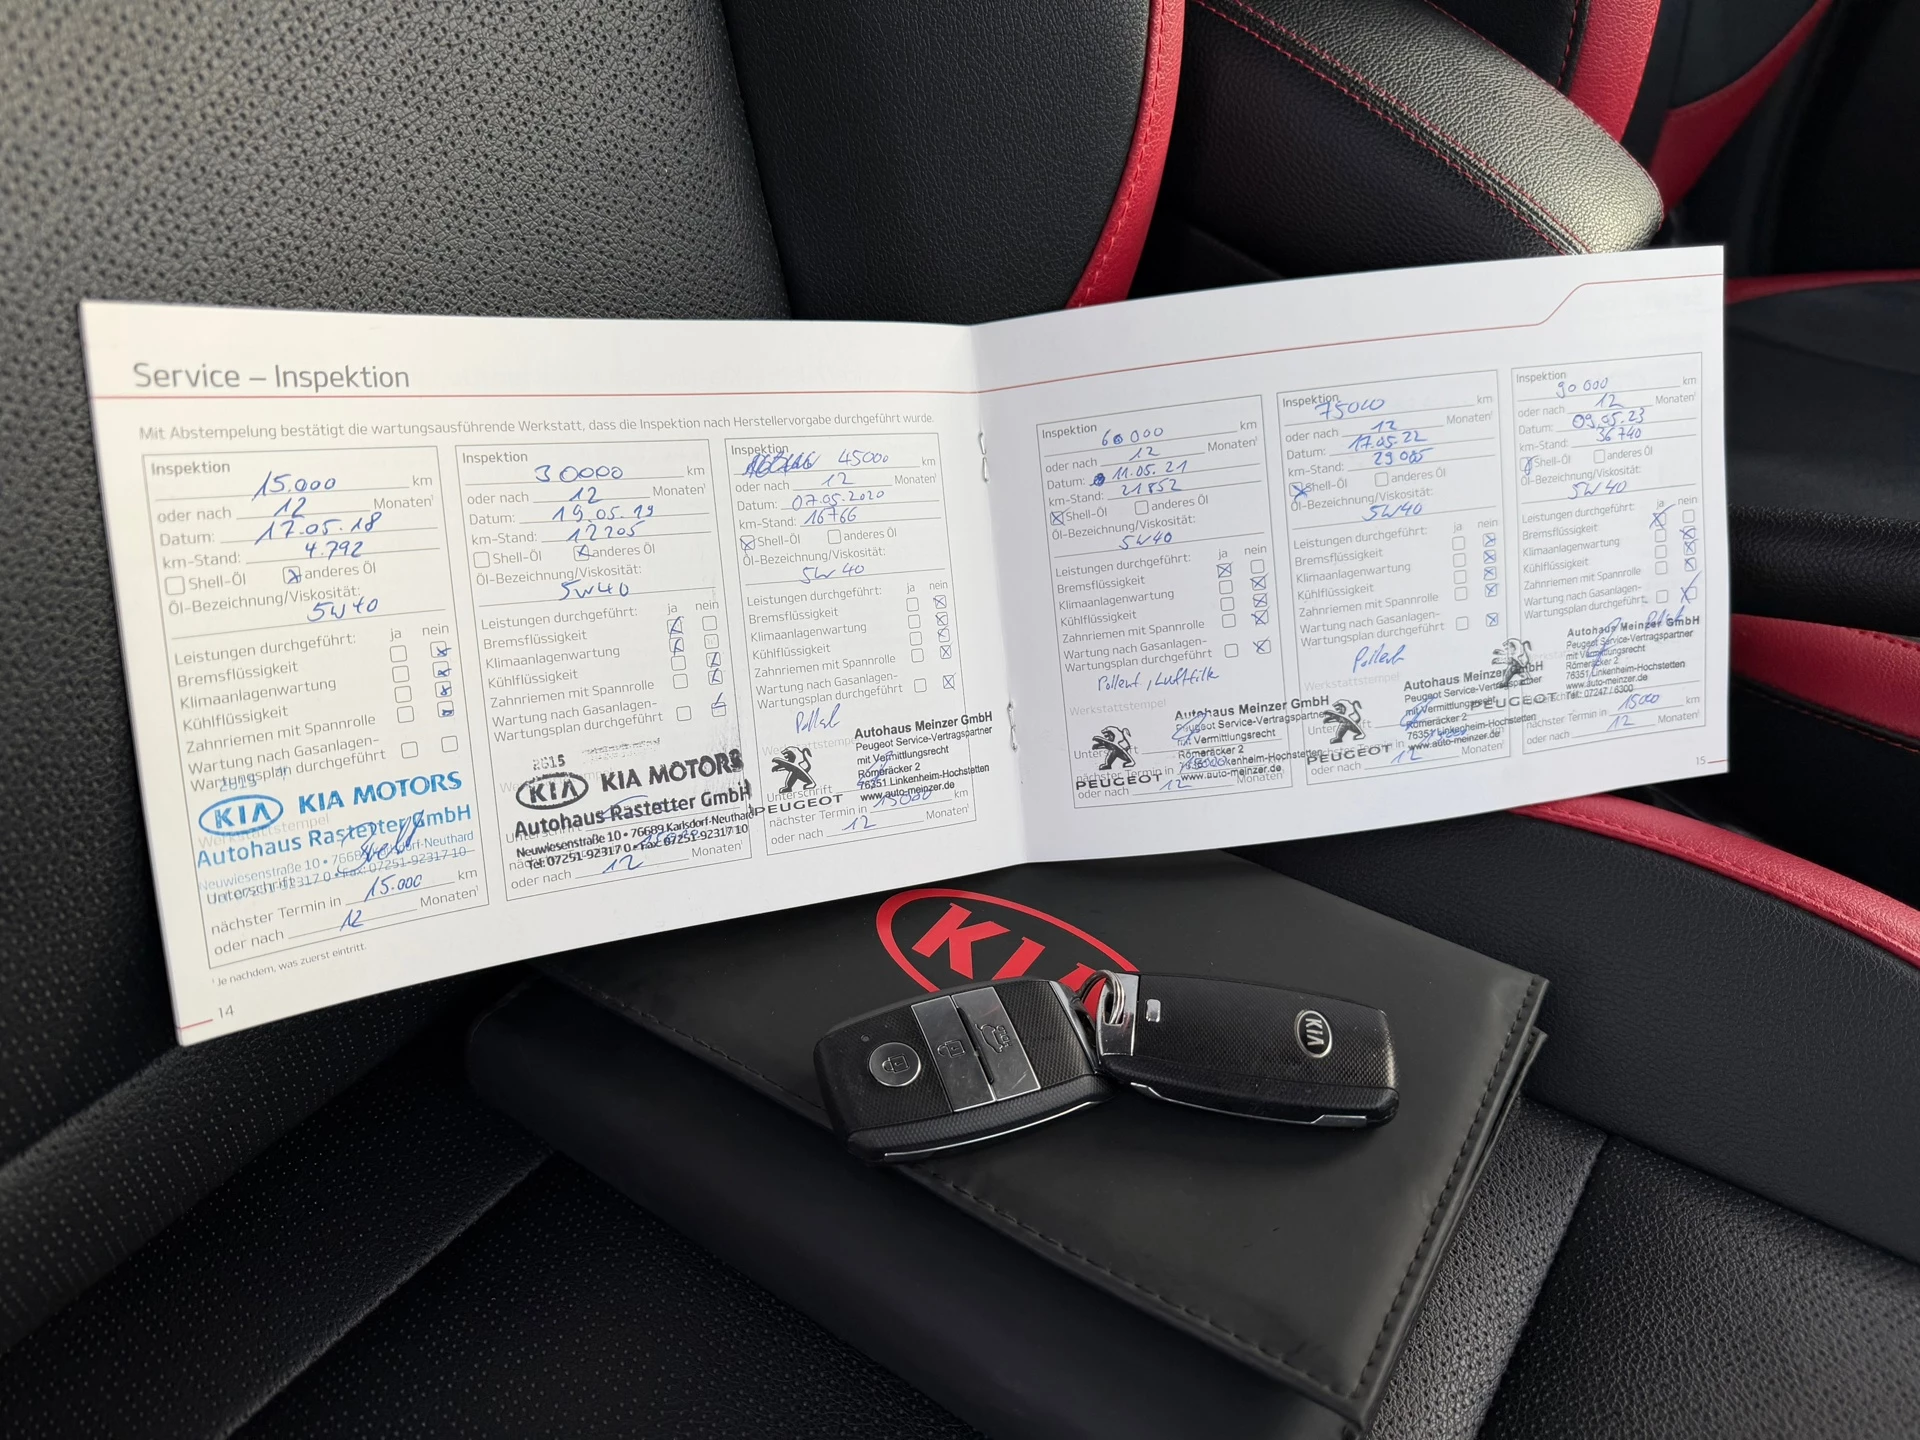 Service – Inspektion
Mit Abstempelung bestätigt die wartungsausführende Werkstatt, dass die Inspektion nach Herstellervorgabe durchgeführt wurde.
Inspektion
15.000 km
oder nach 12 Monaten¹
Datum: 17.05.18
km-Stand: 4.792
Shell-Öl anderes Öl
Öl-Bezeichnung/Viskosität:
5W40
Leistungen durchgeführt: ja nein
Bremsflüssigkeit
Klimaanlagenwartung
Kühlflüssigkeit
Zahnriemen mit Spannrolle
Wartung nach Gasanlagen-
Wartungsplan durchgeführt
KIA KIA MOTORS
Autohaus Rastetter GmbH
Neuwiesenstraße 10 • 76689 Karlsdorf-Neuthard
Tel: 07251-92317 0 • Fax: 07251-92317 10
Unterschrift
nächster Termin in 15.000 km
oder nach 12 Monaten¹
¹ Je nachdem, was zuerst eintritt.
14
Inspektion
30000 km
oder nach 12 Monaten¹
Datum: 19.05.19
km-Stand: 12205
Shell-Öl anderes Öl
Öl-Bezeichnung/Viskosität:
5W40
Leistungen durchgeführt: ja nein
Bremsflüssigkeit
Klimaanlagenwartung
Kühlflüssigkeit
Zahnriemen mit Spannrolle
Wartung nach Gasanlagen-
Wartungsplan durchgeführt
2615
KIA KIA MOTORS
Autohaus Rastetter GmbH
Neuwiesenstraße 10 • 76689 Karlsdorf-Neuthard
Tel: 07251-92317 0 • Fax: 07251-92317 10
oder nach 12 Monaten¹
Inspektion
45000 km
oder nach 12 Monaten¹
Datum: 07.05.2020
km-Stand: 16766
Shell-Öl anderes Öl
Öl-Bezeichnung/Viskosität:
5W40
Leistungen durchgeführt: ja nein
Bremsflüssigkeit
Klimaanlagenwartung
Kühlflüssigkeit
Zahnriemen mit Spannrolle
Wartung nach Gasanlagen-
Wartungsplan durchgeführt
PEUGEOT
Autohaus Meinzer GmbH
Peugeot Service-Vertragspartner
mit Vermittlungsrecht
Römeräcker 2
76351 Linkenheim-Hochstetten
www.auto-meinzer.de
Unterschrift
nächster Termin in 15000 km
oder nach 12 Monaten¹
Inspektion
60000 km
oder nach 12 Monaten¹
Datum: 11.05.21
km-Stand: 21852
Shell-Öl anderes Öl
Öl-Bezeichnung/Viskosität:
5W40
Leistungen durchgeführt: ja nein
Bremsflüssigkeit
Klimaanlagenwartung
Kühlflüssigkeit
Zahnriemen mit Spannrolle
Wartung nach Gasanlagen-
Wartungsplan durchgeführt
Werkstattstempel
PEUGEOT
Autohaus Meinzer GmbH
Peugeot Service-Vertragspartner
mit Vermittlungsrecht
Römeräcker 2
76351 Linkenheim-Hochstetten
www.auto-meinzer.de
nächster Termin in
oder nach 12 Monaten¹
Inspektion
75000 km
oder nach 12 Monaten¹
Datum: 17.05.22
km-Stand: 29085
Shell-Öl anderes Öl
Öl-Bezeichnung/Viskosität:
5W40
Leistungen durchgeführt: ja nein
Bremsflüssigkeit
Klimaanlagenwartung
Kühlflüssigkeit
Zahnriemen mit Spannrolle
Wartung nach Gasanlagen-
Wartungsplan durchgeführt
Werkstattstempel
PEUGEOT
Autohaus Meinzer GmbH
Peugeot Service-Vertragspartner
mit Vermittlungsrecht
Römeräcker 2
76351 Linkenheim-Hochstetten
www.auto-meinzer.de
oder nach 12 Monaten¹
Inspektion
90000 km
oder nach 12 Monaten¹
Datum: 09.05.23
km-Stand: 36740
Shell-Öl anderes Öl
Öl-Bezeichnung/Viskosität:
5W40
Leistungen durchgeführt: ja nein
Bremsflüssigkeit
Klimaanlagenwartung
Kühlflüssigkeit
Zahnriemen mit Spannrolle
Wartung nach Gasanlagen-
Wartungsplan durchgeführt
PEUGEOT
Autohaus Meinzer GmbH
Peugeot Service-Vertragspartner
mit Vermittlungsrecht
Römeräcker 2
76351 Linkenheim-Hochstetten
www.auto-meinzer.de
Tel: 07247 / 6300
nächster Termin in 15000 km
oder nach 12 Monaten¹
15
KIA
KIA